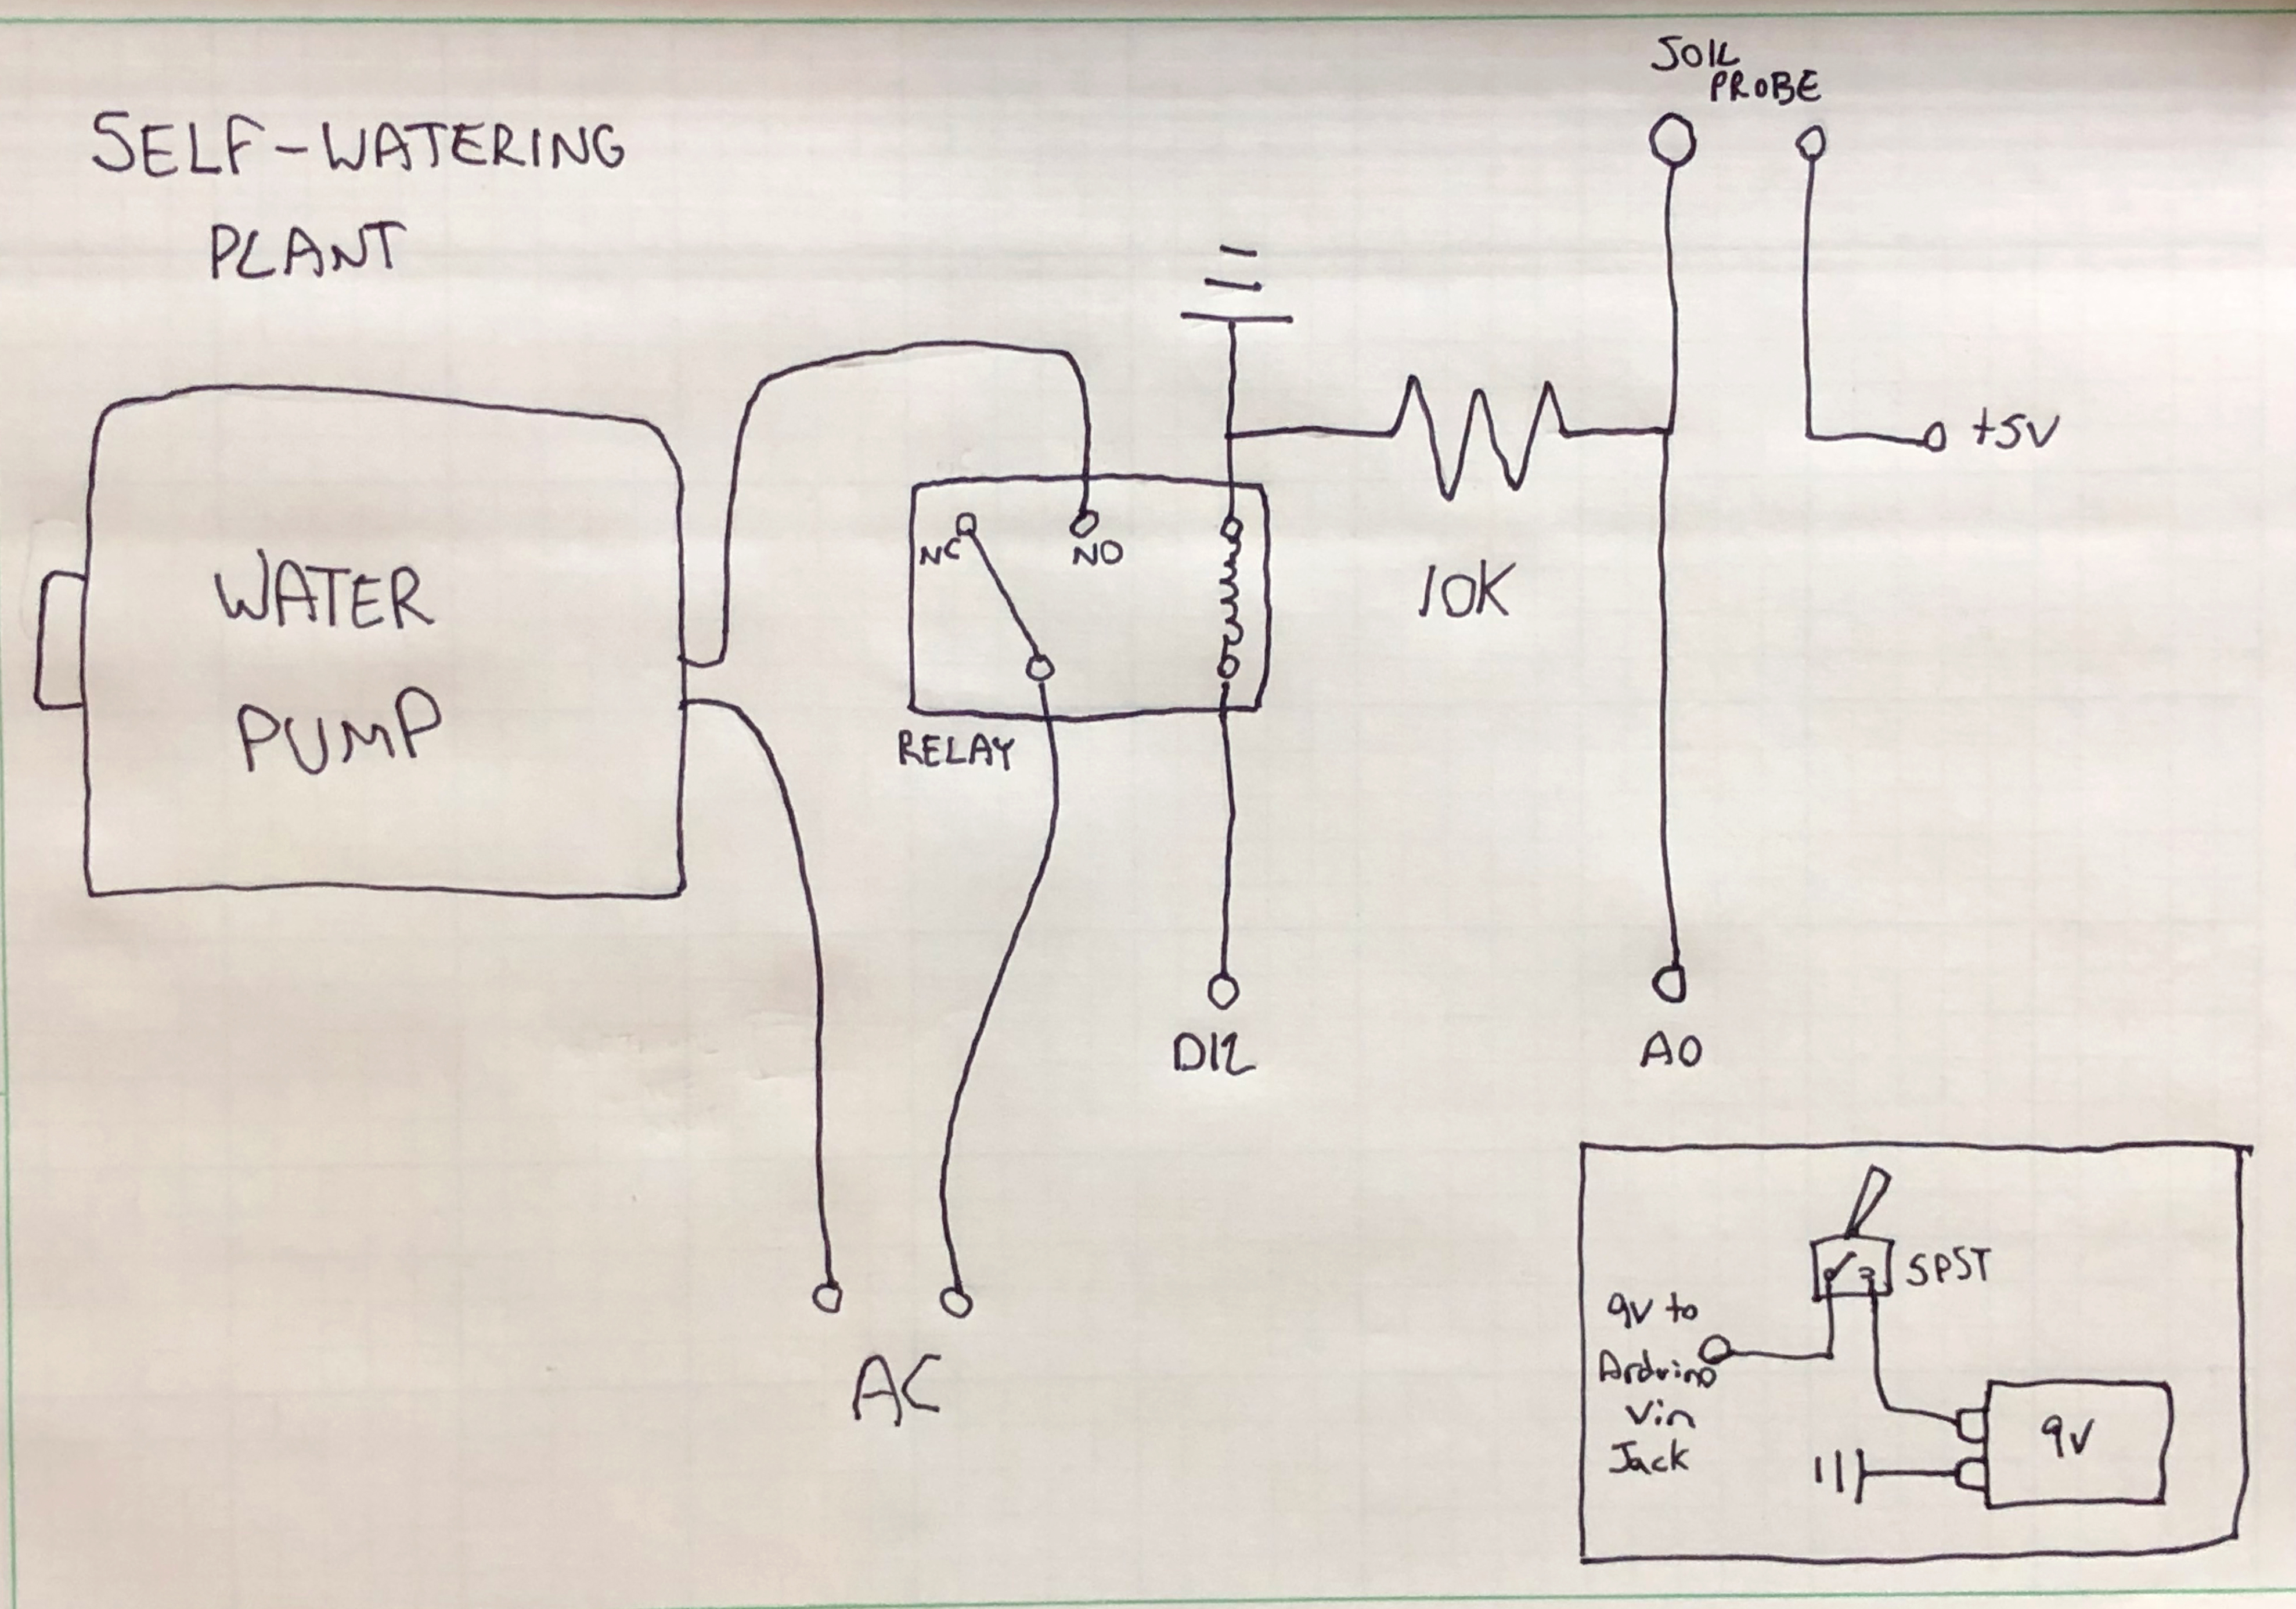 SELF-WATERING
PLANT
SOIL
PROBE
+5V
WATER
PUMP
NC
NO
RELAY
10K
D12
A0
AC
SPST
9V to
Arduino
Vin
Jack
9V